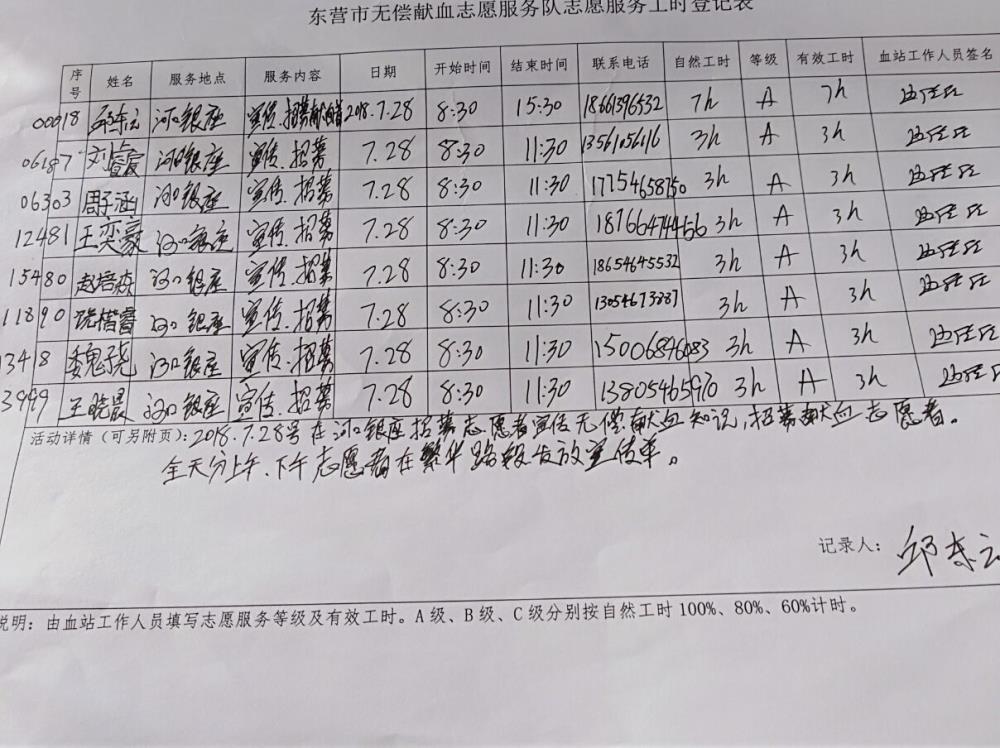 东营市无偿献血志愿服务队志愿服务工时登记表
序号 姓名 服务地点 服务内容 日期 开始时间 结束时间 联系电话 自然工时 等级 有效工时 血站工作人员签名
00018 河口银座 宣传.招募 2018.7.28 8:30 15:30 18661396532 7h A 7h
06187 刘睿 河口银座 宣传.招募 7.28 8:30 11:30 1356105616 3h A 3h
06303 周子涵 河口银座 宣传.招募 7.28 8:30 11:30 17754658750 3h A 3h
12481 王奕豪 河口银座 宣传.招募 7.28 8:30 11:30 18766474456 3h A 3h
15480 赵培森 河口银座 宣传.招募 7.28 8:30 11:30 18654645532 3h A 3h
11890 河口银座 宣传.招募 7.28 8:30 11:30 13054673287 3h A 3h
13418 河口银座 宣传.招募 7.28 8:30 11:30 15006846083 3h A 3h
3999 王晓晨 河口银座 宣传.招募 7.28 8:30 11:30 13805465970 3h A 3h
活动详情（可另附页）：2018.7.28号在河口银座招募志愿者宣传无偿献血知识，招募献血志愿者。
全天分上午、下午志愿者在繁华路段发放宣传单。
记录人：邱东云
说明：由血站工作人员填写志愿服务等级及有效工时。A级、B级、C级分别按自然工时100%、80%、60%计时。